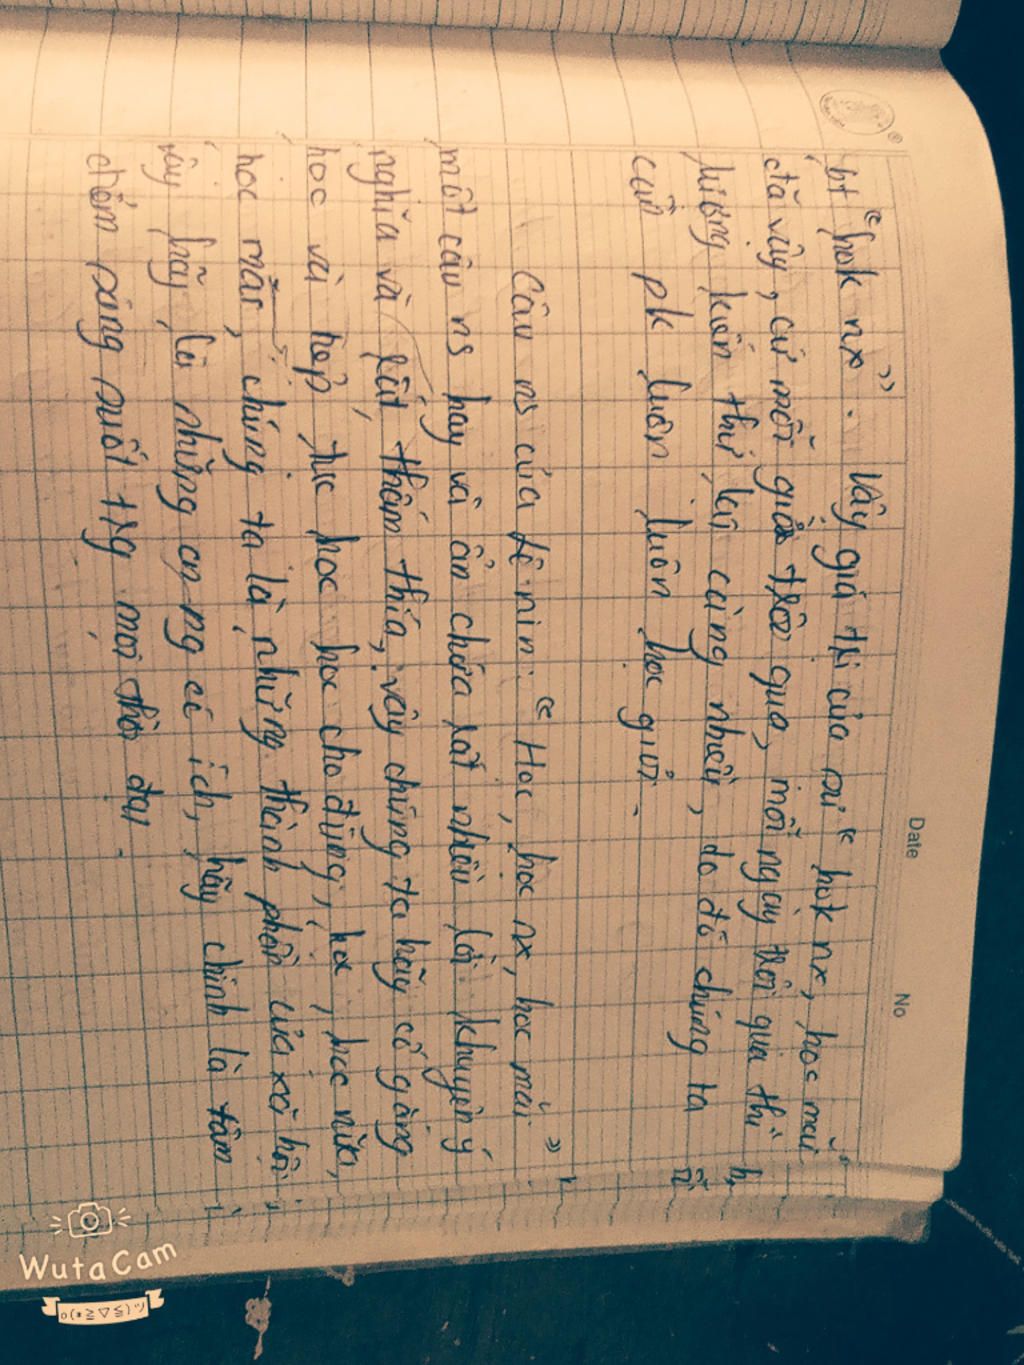 Date No
bt "hok nx". Vậy giá trị của sự "hok nx, học mãi"
đã vậy, cứ mỗi giờ trôi qua, mỗi ngày trôi qua thì
lượng kiến thức lại càng nhiều, do đó chúng ta
cần pk luôn luôn học gửi.
Câu ns của Lê nin: "Học, học nx, học mãi"
một câu ns hay và ẩn chứa rất nhiều lời khuyên ý
nghĩa và rất thấm thía, vậy chúng ta hãy cố gắng
học và tiếp tục học học cho đúng, học, học nữa,
học mãi, chúng ta là những thành phần của xã hội
vậy hãy là những cn ng có ích, hãy chính là tâm
chấm sáng suốt trg mọi thời đại.
WutaCam